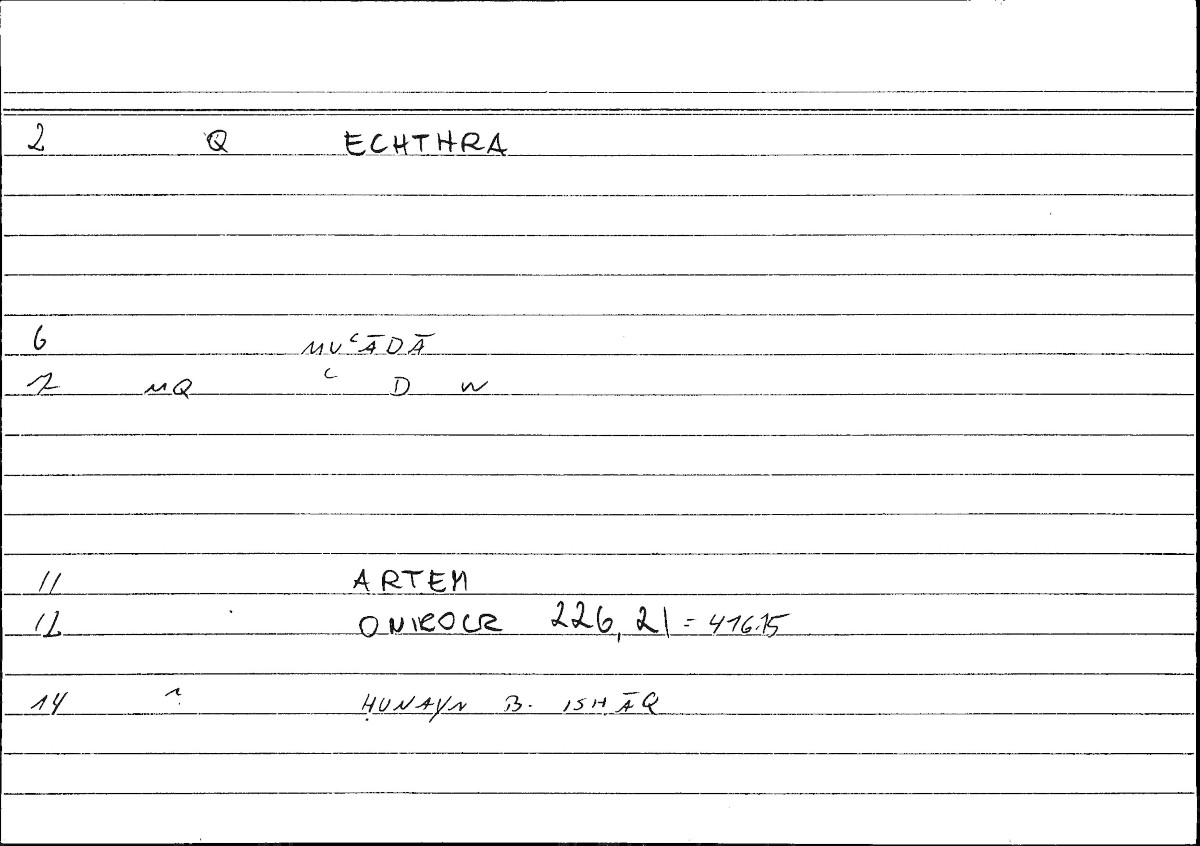 2 Q ECHTHRA
6 MUʿĀDĀ
7 MQ ʿ D W
11 ARTEM
12 ONIROCR 226, 21 = 416.15
14 ḤUNAYN B. ISHĀQ